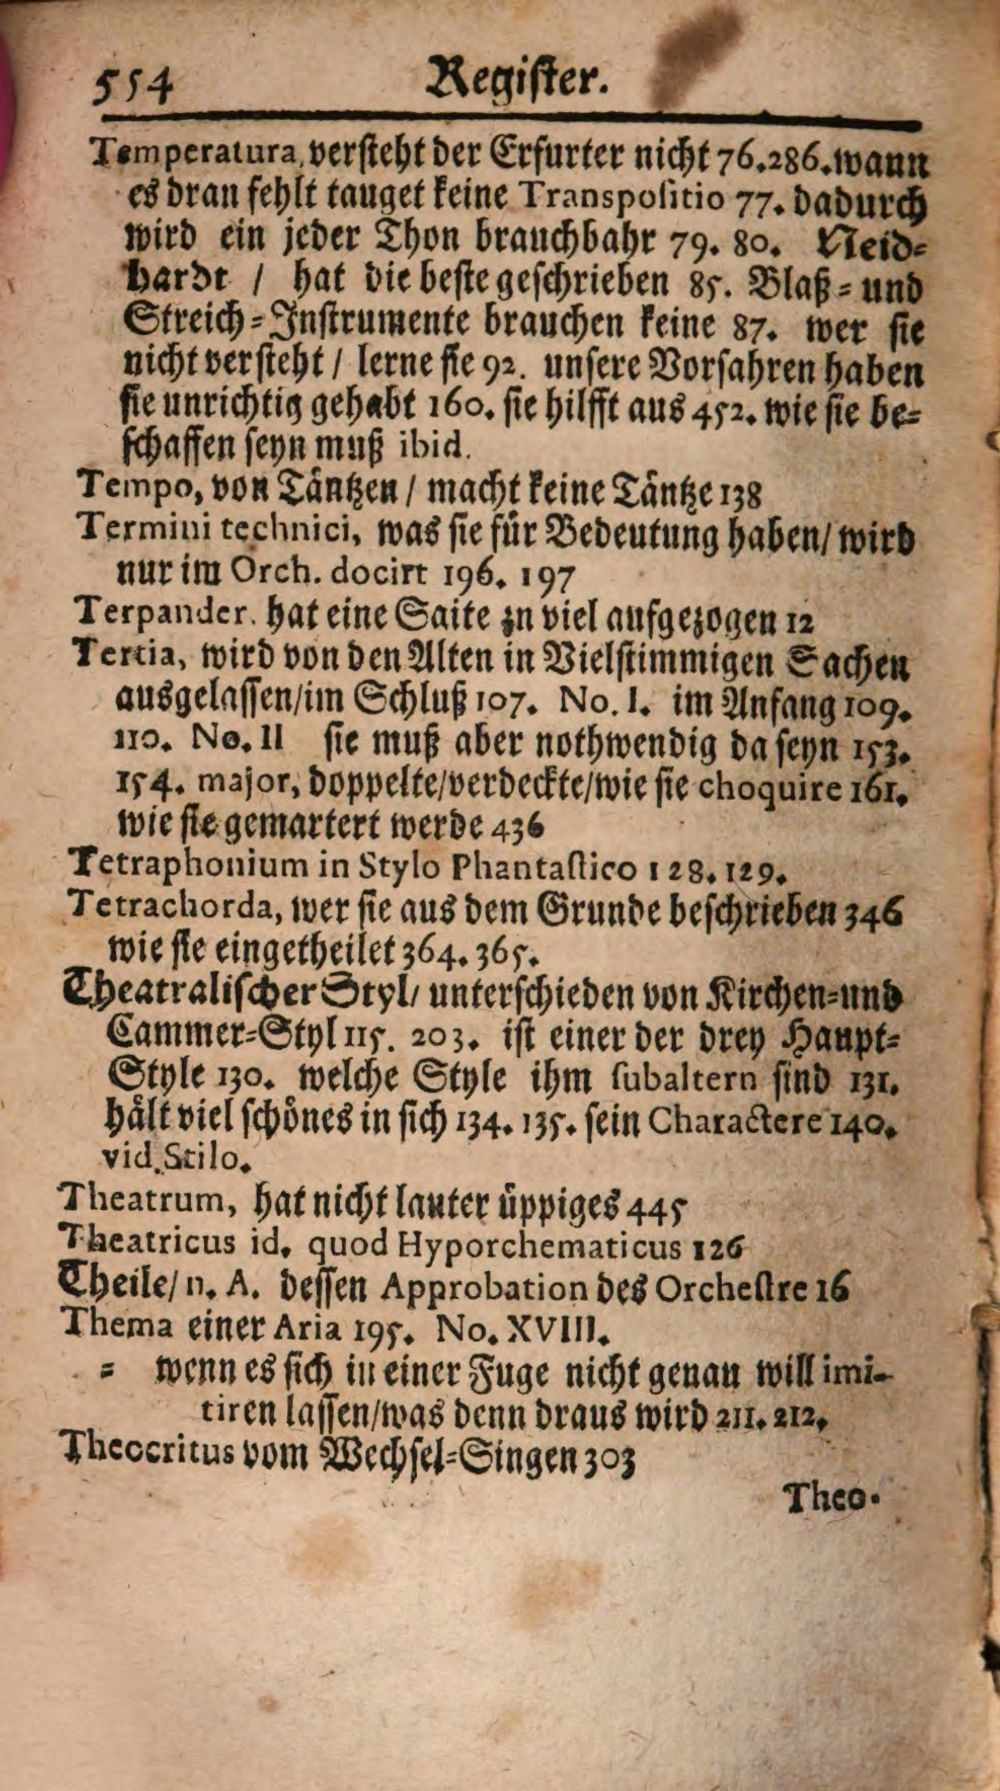 554 Register.
Temperatura, versteht der Erfurter nicht 76. 286. wann
es dran fehlt tauget keine Transpositio 77. dadurch
wird ein jeder Thon brauchbahr 79. 80. Neid=
hardt / hat die beste geschrieben 85. Blaß= und
Streich=Instrumente brauchen keine 87. wer sie
nicht versteht / lerne sie 92. unsere Vorfahren haben
sie unrichtig gehabt 160. sie hilfft aus 452. wie sie be=
schaffen seyn muß ibid.
Tempo, von Täntzen / macht keine Täntze 138
Termini technici, was sie für Bedeutung haben / wird
nur im Orch. docirt 196. 197
Terpander. hat eine Saite zu viel aufgezogen 12
Tertia, wird von den Alten in Vielstimmigen Sachen
ausgelassen / im Schluß 107. No. I. im Anfang 109.
110. No. II sie muß aber nothwendig da seyn 153.
154. major, doppelte / verdeckte / wie sie choquire 161.
wie sie gemartert werde 436
Tetraphonium in Stylo Phantastico 128. 129.
Tetrachorda, wer sie aus dem Grunde beschrieben 346
wie sie eingetheilet 364. 365.
Theatralischer Styl / unterschieden von Kirchen= und
Cammer=Styl 115. 203. ist einer der drey Haupt=
Style 130. welche Style ihm subaltern sind 131.
hält viel schönes in sich 134. 135. sein Charactere 140.
vid. Stilo.
Theatrum, hat nicht lauter üppiges 445
Theatricus id. quod Hyporchematicus 126
Theile / n. A. dessen Approbation des Orchestre 16
Thema einer Aria 195. No. XVIII.
= wenn es sich in einer Fuge nicht genau will imi-
tiren lassen / was denn draus wird 211. 212.
Theocritus vom Wechsel=Singen 303
Theo-